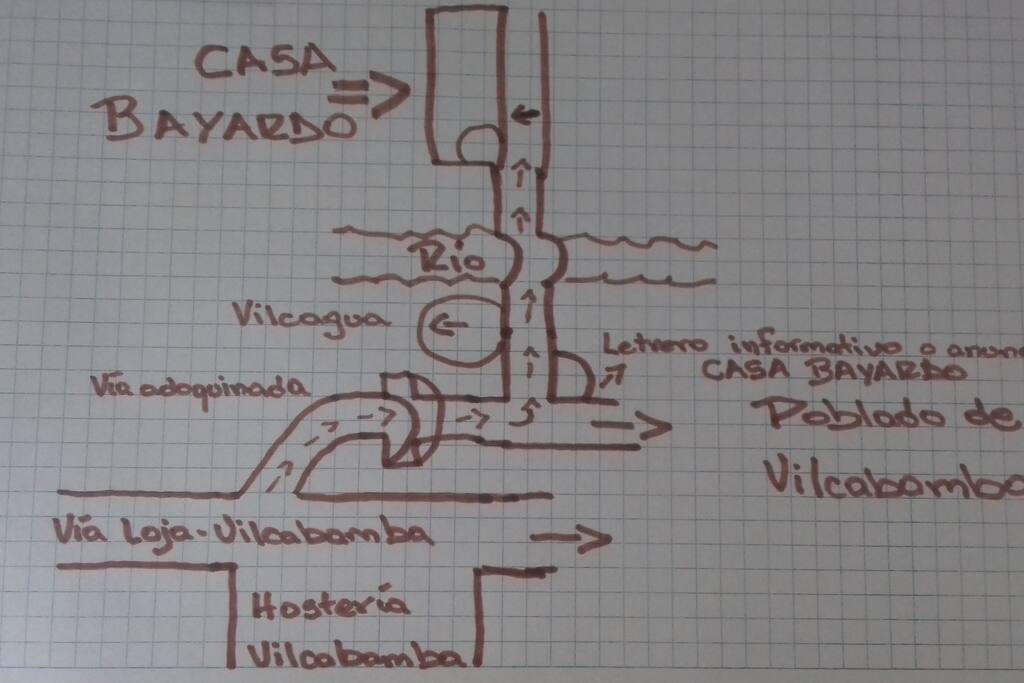 CASA
BAYARDO
Río
Vilcagua
Letrero informativo o
CASA BAYARDO
Vía adoquinada
Poblado de
Vilcabamba
Vía Loja-Vilcabamba
Hostería
Vilcabamba